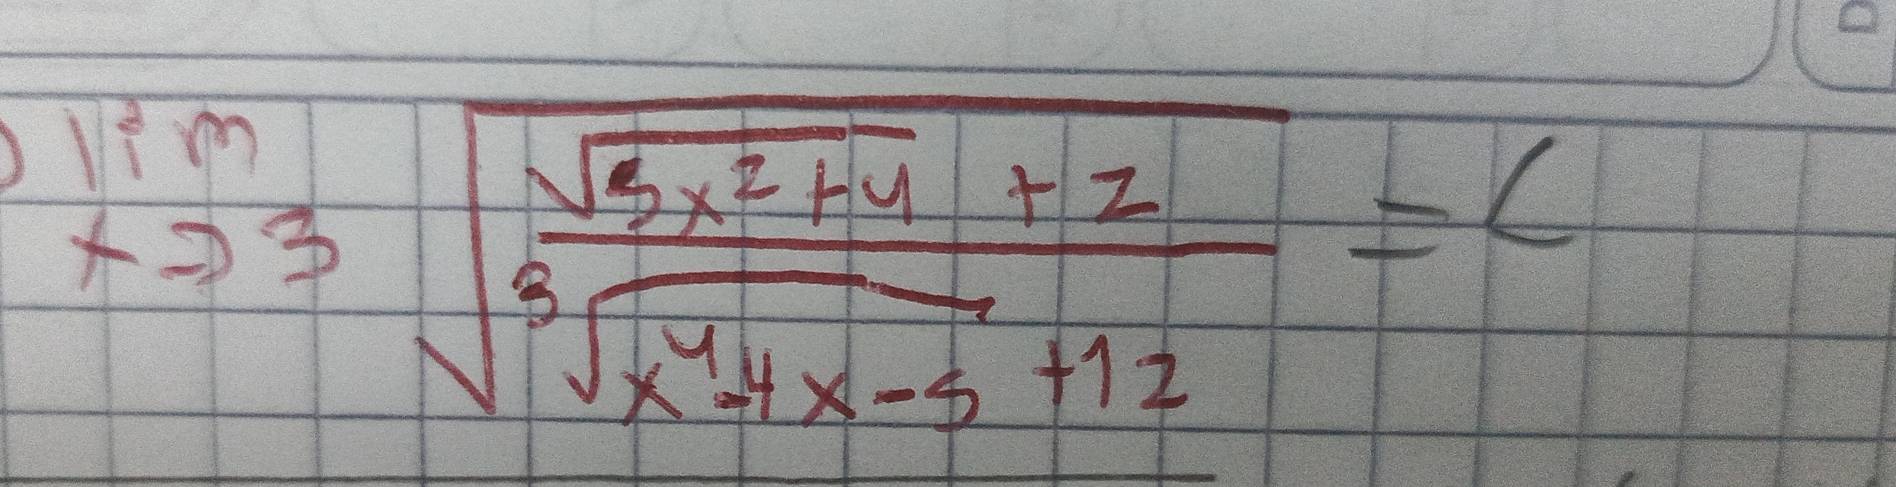 ) lim x→3 √((√(5x²+4) + 2) / (³√(x⁴-4x-5) + 12)) = (
D